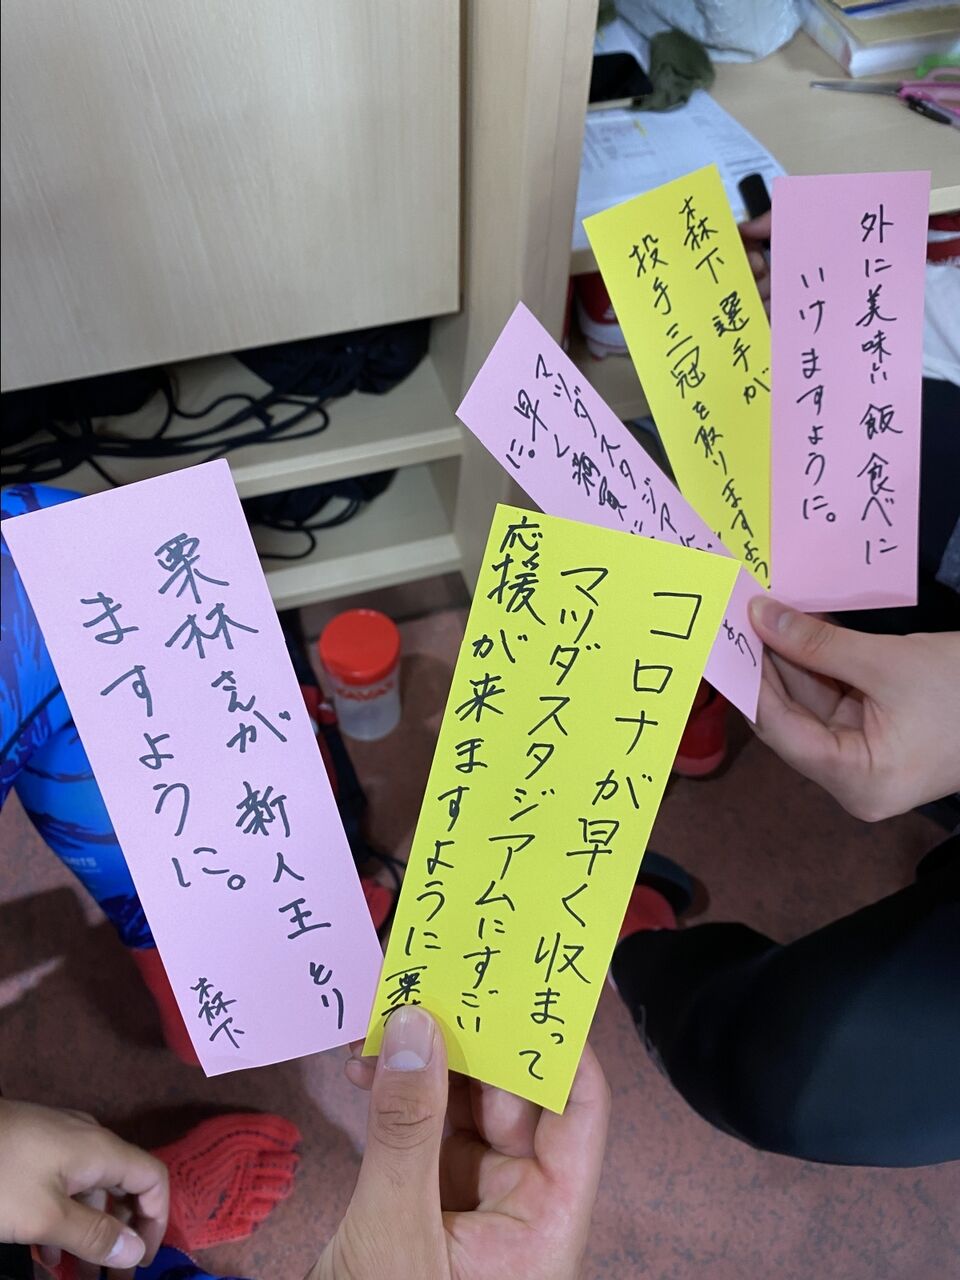 外に美味い飯食べに
いけますように。
森下選手が
投手三冠を取りますよう
マツダスタジアムに
早く満員
に。
コロナが早く収まって
マツダスタジアムにすごい
応援が来ますように
栗
栗林さんが新人王とり
ますように。
森下